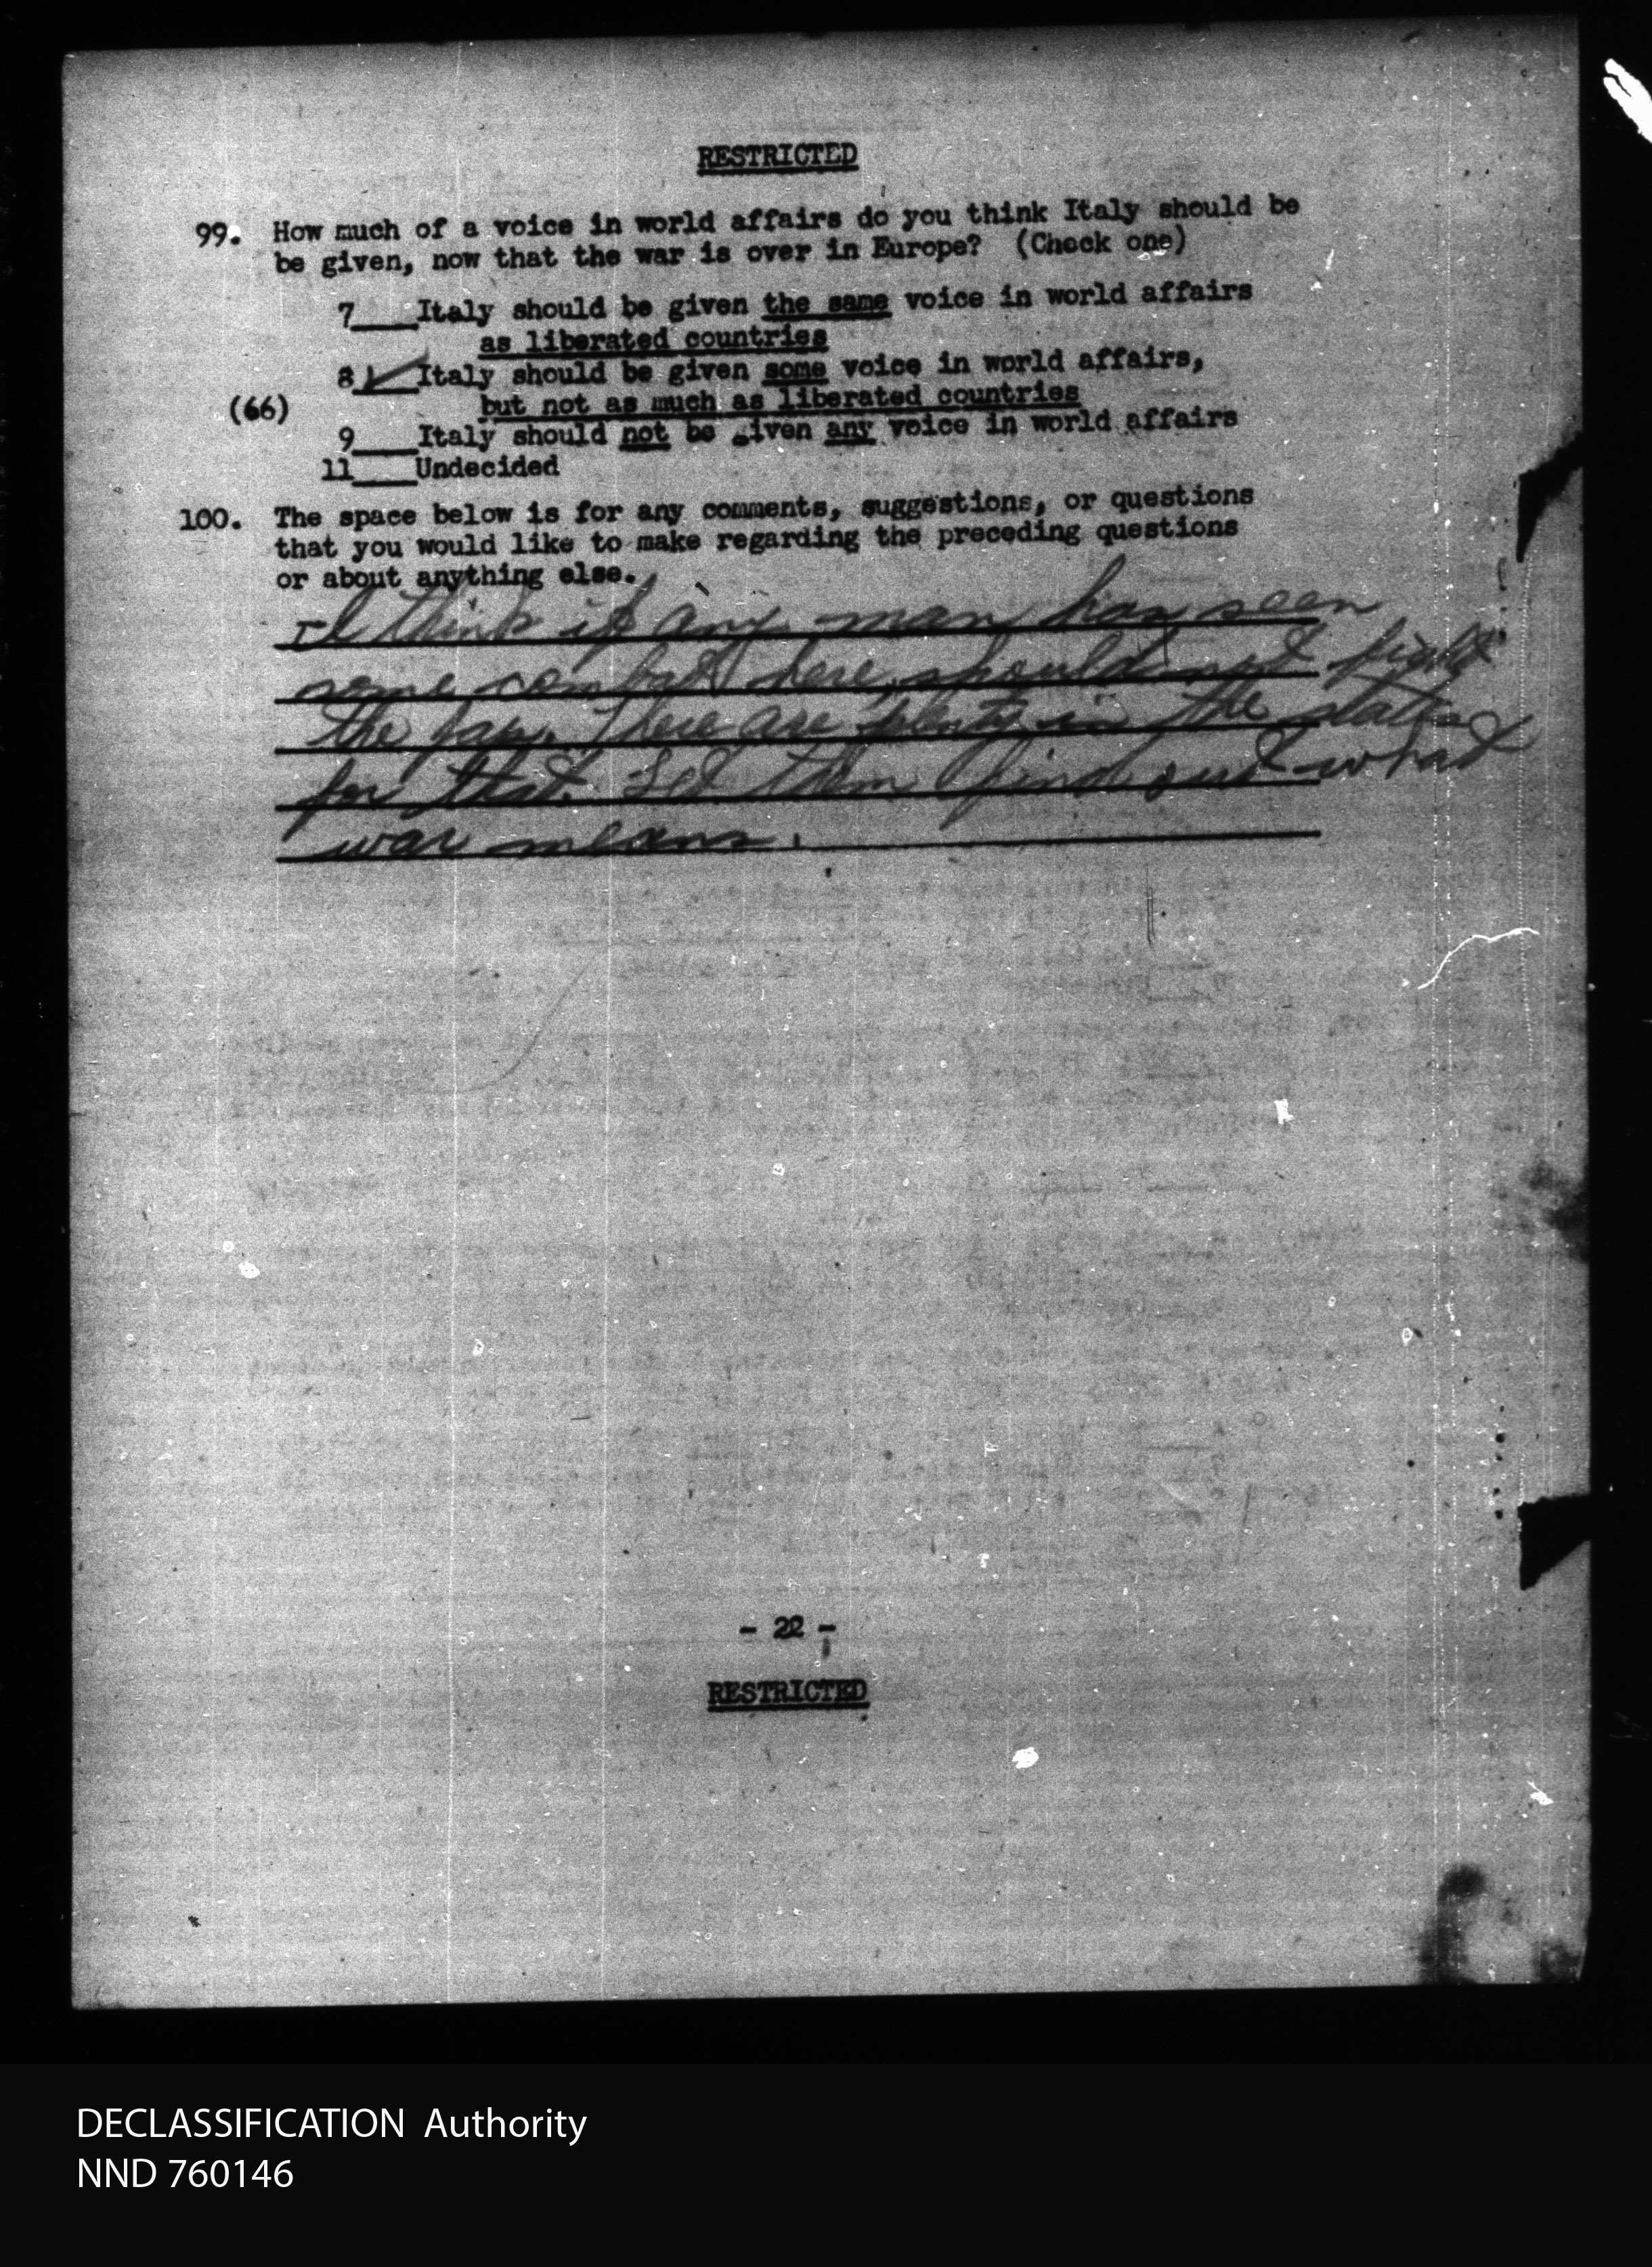 RESTRICTED
99. How much of a voice in world affairs do you think Italy should be
be given, now that the war is over in Europe? (Check one)
7____Italy should be given the same voice in world affairs
as liberated countries
8_✓_Italy should be given some voice in world affairs,
(66) but not as much as liberated countries
9____Italy should not be given any voice in world affairs
11____Undecided
100. The space below is for any comments, suggestions, or questions
that you would like to make regarding the preceding questions
or about anything else.
I think if any man has seen
some combat here, should not fight
the Jap. There are plenty in the states
for that. Let them find out what
war means.
- 22 -
RESTRICTED
DECLASSIFICATION Authority
NND 760146